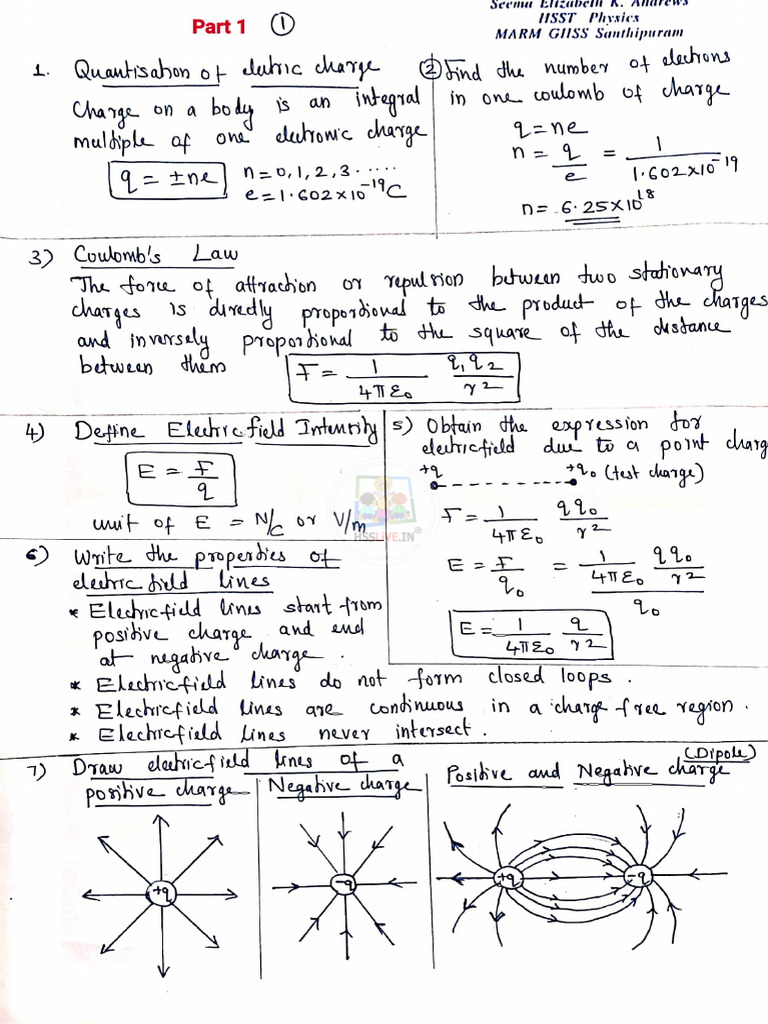 Seema Elizabeth K. Andrews
HSST Physics
MARM GHSS Santhipuram
Part 1 ①
1. Quantisation of elutric charge
Charge on a body is an integral
multiple of one electronic charge
q = ±ne n = 0, 1, 2, 3 .....
e = 1.602 × 10⁻¹⁹ C
② Find the number of electrons
in one coulomb of charge
q = ne
n = q/e = 1/1.602×10⁻¹⁹
n = 6.25×10¹⁸
3) Coulomb's Law
The force of attraction or repulsion between two stationary
charges is directly proportional to the product of the charges
and inversely proportional to the square of the distance
between them F = 1/4πε₀ q₁q₂/r²
4) Define Electric field Intensity
E = F/q
unit of E = N/C or V/m
5) Obtain the expression for
electricfield due to a point charg
+q +q₀ (test charge)
F = 1/4πε₀ qq₀/r²
E = F/q₀ = 1/4πε₀ qq₀/r² / q₀
E = 1/4πε₀ q/r²
6) Write the properties of
electric field lines
* Electricfield lines start from
positive charge and end
at negative charge .
* Electricfield lines do not form closed loops .
* Electricfield lines are continuous in a charge free region .
* Electricfield lines never intersect .
7) Draw electricfield lines of a
positive charge
Negative charge
Positive and Negative charge (Dipole)
+q
-q
+q -q
HSSLIVE.IN®